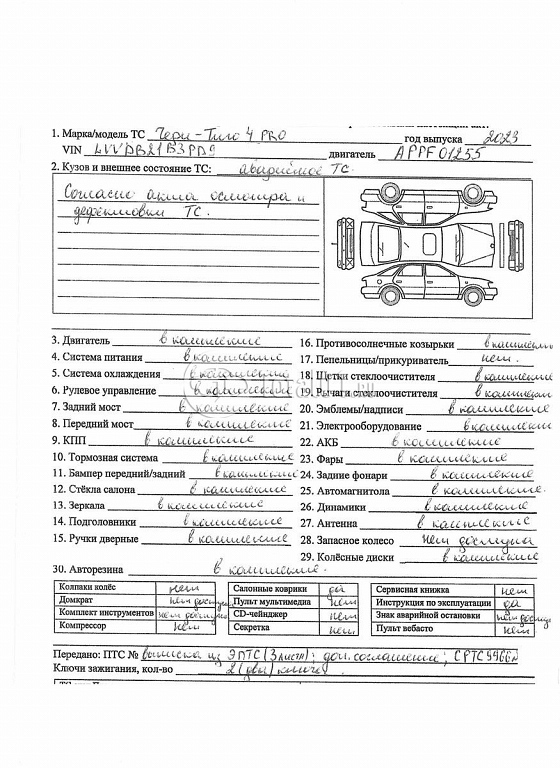 1. Марка/модель ТС Чери-Тиго 4 PRO год выпуска 2023
VIN LVVDB21B3PD9 двигатель APPF01255
2. Кузов и внешнее состояние ТС: аварийное ТС.
Согласно акта осмотра и
дефектовки ТС.
3. Двигатель в комплекте
4. Система питания в комплекте
5. Система охлаждения в комплекте
6. Рулевое управление в комплекте
7. Задний мост в комплекте
8. Передний мост в комплекте
9. КПП в комплекте
10. Тормозная система в комплекте
11. Бампер передний/задний в комплекте
12. Стёкла салона в комплекте
13. Зеркала в комплекте
14. Подголовники в комплекте
15. Ручки дверные в комплекте
16. Противосолнечные козырьки в комплекте
17. Пепельницы/прикуриватель нет.
18. Щетки стеклоочистителя в комплекте
19. Рычаги стеклоочистителя в комплекте
20. Эмблемы/надписи в комплекте
21. Электрооборудование в комплекте
22. АКБ в комплекте
23. Фары в комплекте
24. Задние фонари в комплекте
25. Автомагнитола в комплекте.
26. Динамики в комплекте
27. Антенна в комплекте
28. Запасное колесо нет доступа
29. Колёсные диски в комплекте
30. Авторезина в комплекте.
Колпаки колёс нет
Домкрат нет доступа
Комплект инструментов нет доступа
Компрессор нет
Салонные коврики да
Пульт мультимедиа нет
CD-чейнджер нет
Секретка нет
Сервисная книжка нет
Инструкция по эксплуатации да
Знак аварийной остановки нет доступа
Пульт вебасто нет
Передано: ПТС № выписка из ЭПТС (3 листа); доп. соглашение; СРТС 9966
Ключи зажигания, кол-во 2 (два) ключа